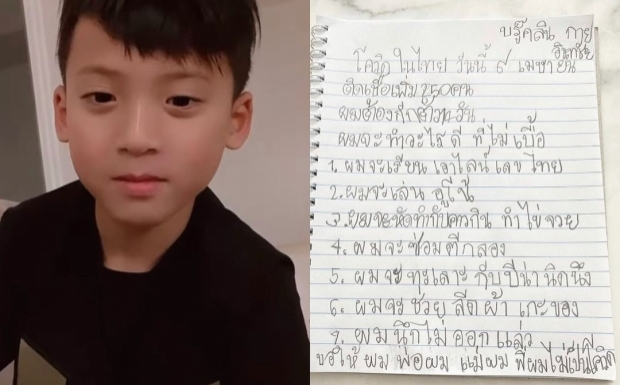 บร๊คลิน กาย
โควิดในไทย วันนี้ ๙ เมษายน
ติดเชื้อเพิ่ม 250คน
ผมต้องกักตัว วัน
ผมจะ ทำอะไรดี ที่ไม่เบื้อ
1. ผมจะเรียน ไลน์ เลข ไทย
2. ผมจะเล่น
3. ผมจะหัดทำกับคาวกิน ทำไข่จวย
4. ผมจะ ซ้อม ตีกลอง
5. ผมจะ ทะเลาะ กับปีน่า นิดนึง
6. ผมจะ ช่วย ลีดผ้า เกะของ
7. ผมนึกไม่ ออกแล่ว
ขอให้ ผม พ่อผม แม่ผม พี่ผมไม่เป็นโควิด